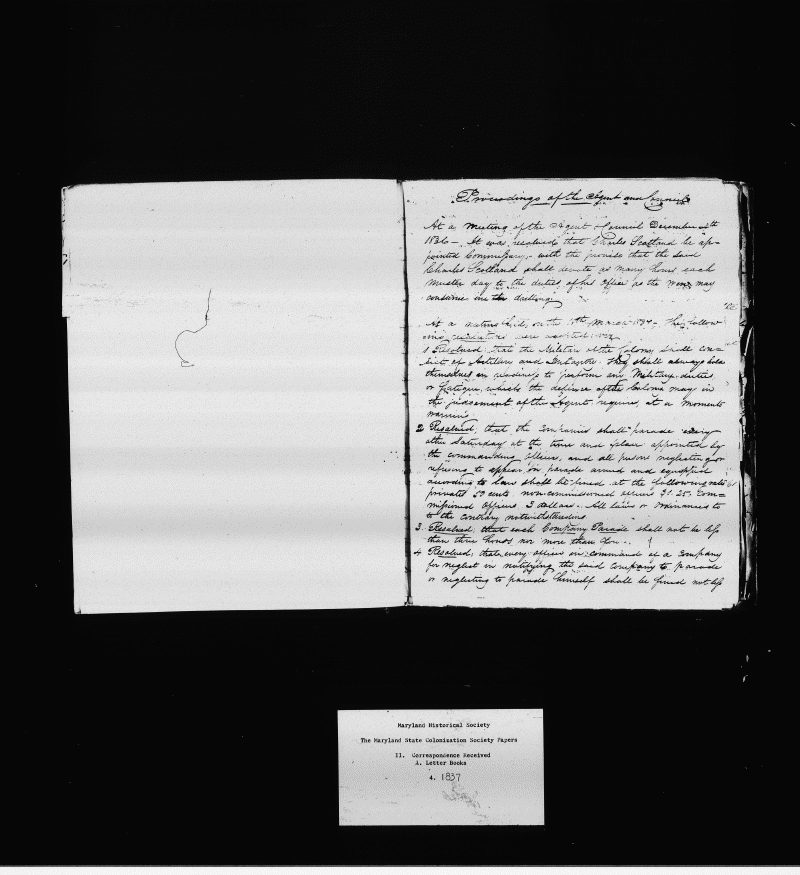 Proceedings of the Agent and Council
At a meeting of the Agent & Council December
1836 – It was resolved that Charles Scotland be ap=
pointed Commissary, with the proviso that the said
Charles Scotland shall devote as many hours each
muster day to the duties of his office as the same may
consume
At a meeting held on the March 1837 – The follow
ing resolutions were
1 Resolved, that the Military of the Colony shall con=
sist of Artillery and Infantry. They shall always hold
themselves in readiness to perform any Military duties
or fatigue, which the defence of the Colony may in
the judgement of the Agent require, at a moments
warning
2 Resolved, that the Companies shall parade every
other Saturday at the time and place appointed by
the commanding officer, and all persons neglecting or
refusing to appear on parade armed and equipped
according to law shall be fined at the following rates
privates 50 cents non-commissioned officers $1.25. Com=
missioned officers 3 dollars. All laws or ordinances to
to the contrary notwithstanding
3. Resolved, that each Company Parade shall not be less
than three hours nor more than
4 Resolved, that every officer in command of a company
for neglect in notifying the said company to parade
or neglecting to parade himself shall be fined not less
Maryland Historical Society
The Maryland State Colonization Society Papers
II. Correspondence Received
A. Letter Books
4. 1837